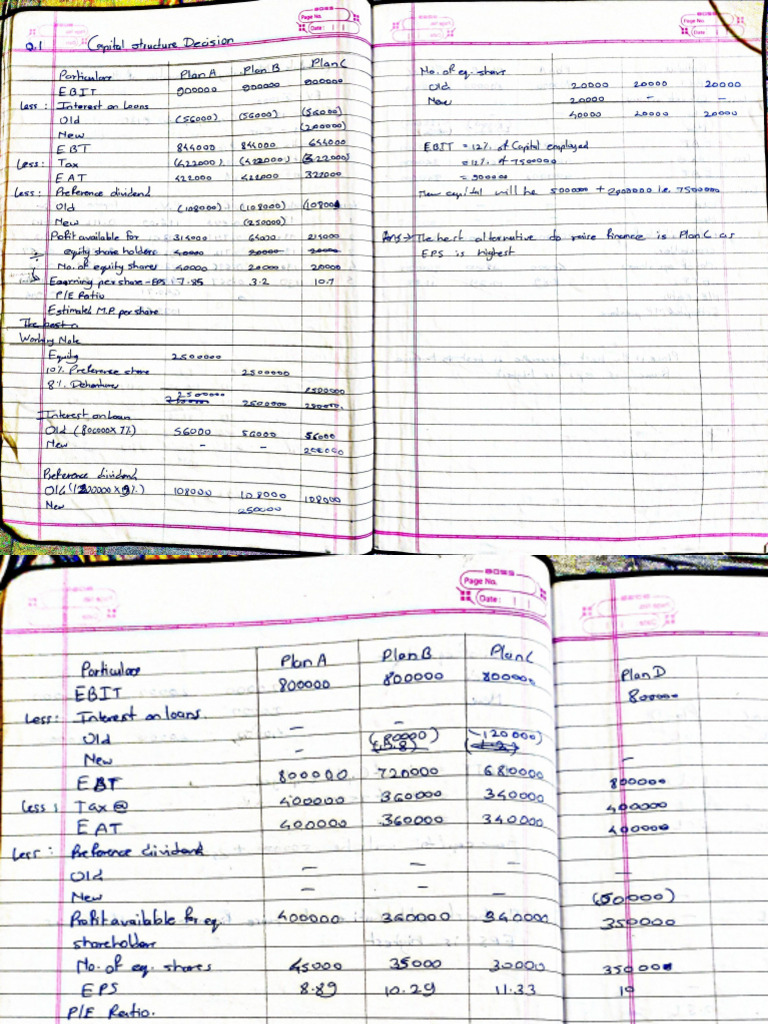 BOSS
Page No.
Date: | |
Q.1 Capital structure Decision
Particulars Plan A Plan B Plan C
EBIT 900000 900000 900000
Less: Interest on Loans
Old (56000) (56000) (56000)
New (200000)
EBT 844000 844000 644000
Less: Tax (422000) (422000) (322000)
EAT 422000 422000 322000
Less: Preference dividend
Old (108000) (108000) (108000)
New (250000)
Profit available for 314000 64000 214000
equity share holders 40000 20000 20000
No. of equity shares 40000 20000 20000
Earning per share - EPS 7.85 3.2 10.7
P/E Ratio
Estimated M.P. per share
The best
Working Note
Equity 2500000
10% Preference share 2500000
8% Debenture 2500000
2500000 2500000 2500000
Interest on loan
Old (800000 x 7%) 56000 56000 56000
New - - 200000
Preference dividend
Old (1200000 x 9%) 108000 108000 108000
New 250000
Page No.
Date: | |
No. of eq. share
Old 20000 20000 20000
New 20000 - -
40000 20000 20000
EBIT = 12% of Capital employed
= 12% of 7500000
= 900000
New capital will be 5000000 + 2500000 i.e. 7500000
Ans → The best alternative to raise finance is Plan C as
EPS is highest
BOSS
Page No.
Date: | |
Particulars Plan A Plan B Plan C Plan D
EBIT 800000 800000 800000 800000
Less: Interest on loans.
Old - -
New - (80000) (120000) -
EBT 800000 720000 680000 800000
Less: Tax @ 400000 360000 340000 400000
EAT 400000 360000 340000 400000
Less: Preference dividend
Old - - - -
New - - - (50000)
Profit available for eq. 400000 360000 340000 350000
shareholders
No. of eq. shares 45000 35000 30000 35000
EPS 8.89 10.29 11.33 10
P/E Ratio.